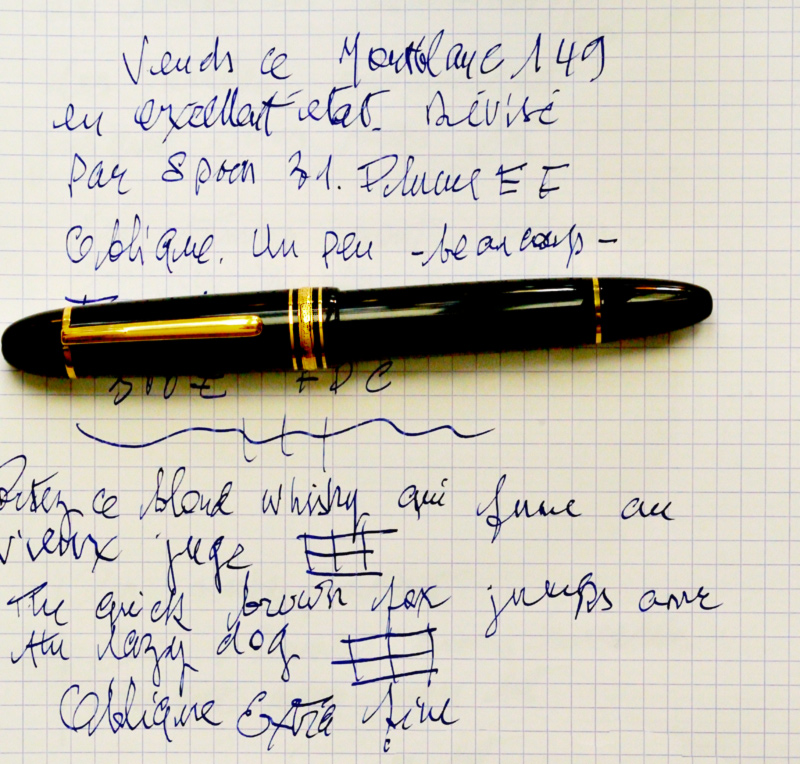 Vends ce Montblanc 149
en excellent état. Révisé
par Spoon 31. Plume EF
Oblique. Un peu - beaucoup -
FDC
Portez ce blond whisky qui fume au
vieux juge
The quick brown fox jumps over
the lazy dog
Oblique Extra fine